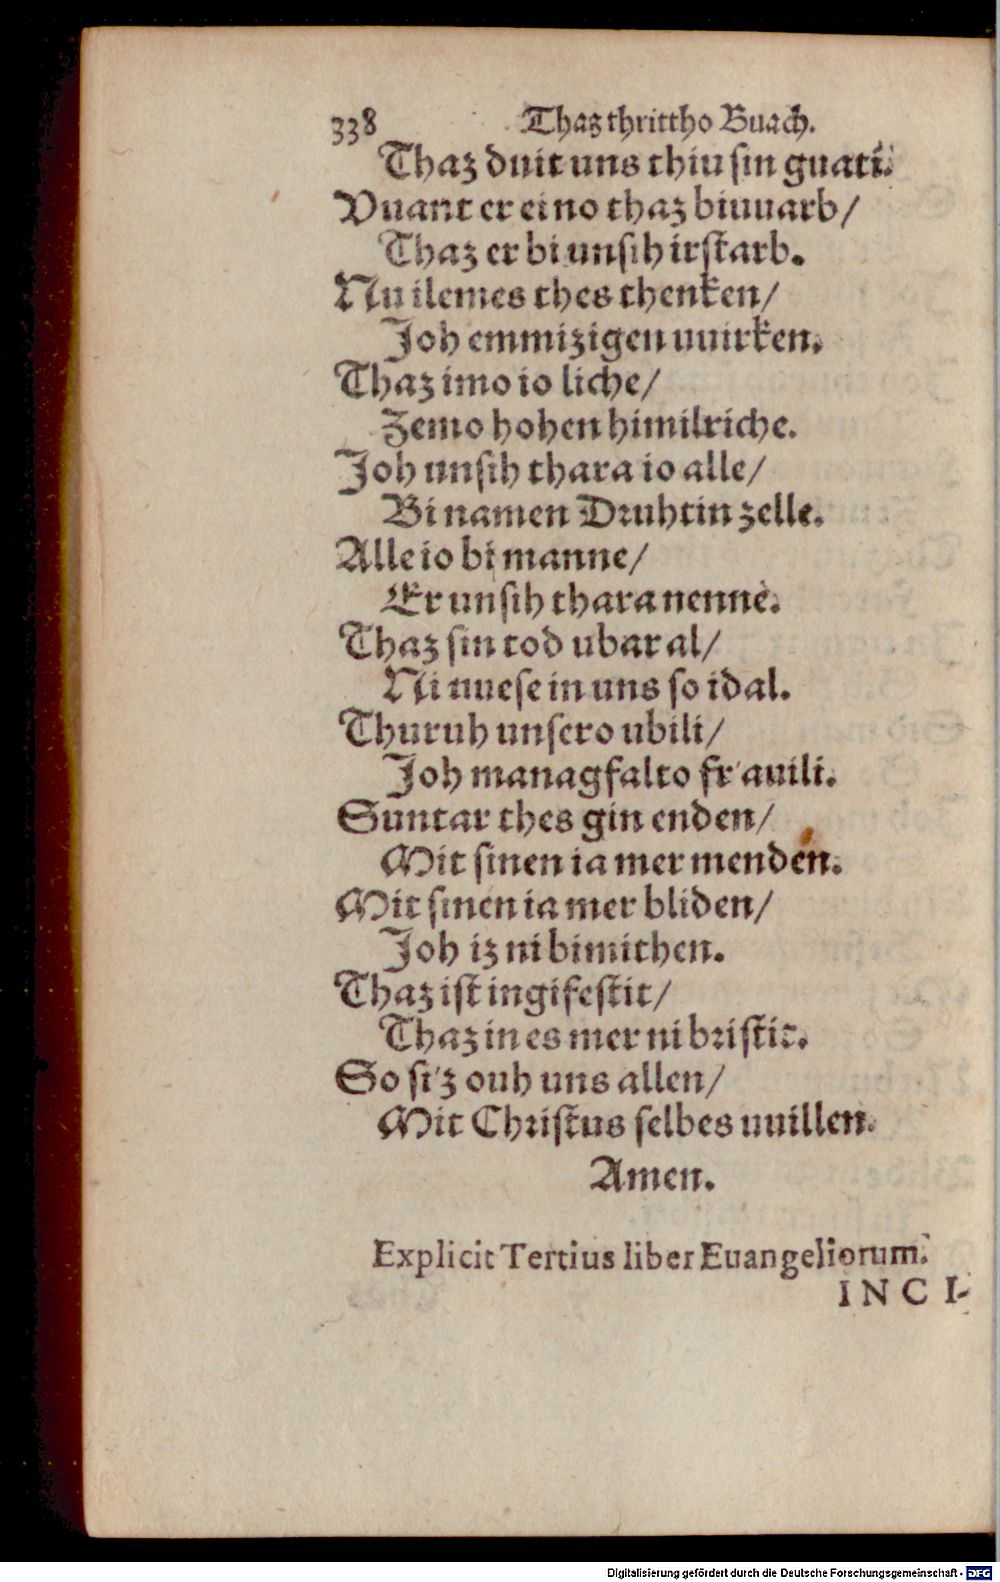 338 Thaz thrittho Buach.
Thaz duit uns thiu sin guati.
Vuant er eino thaz biuuarb/
Thaz er bi unsih irstarb.
Nu ilemes thes thenken/
Joh emmizigen uuirken.
Thaz imo io liche/
Zemo hohen himilriche.
Joh unsih thara io alle/
Bi namen Druhtin zelle.
Alle io bi manne/
Er unsih thara nenne.
Thaz sin tod ubar al/
Ni uuese in uns so idal.
Thuruh unsero ubili/
Joh managfalto fr'auili.
Suntar thes gin enden/
Mit sinen ia mer menden.
Mit sinen ia mer bliden/
Joh iz ni bimithen.
Thaz ist in gifestit/
Thaz in es mer ni bristit.
So si'z ouh uns allen/
Mit Christus selbes uuillen.
Amen.
Explicit Tertius liber Euangeliorum.
INCI-
Digitalisierung gefördert durch die Deutsche Forschungsgemeinschaft - DFG